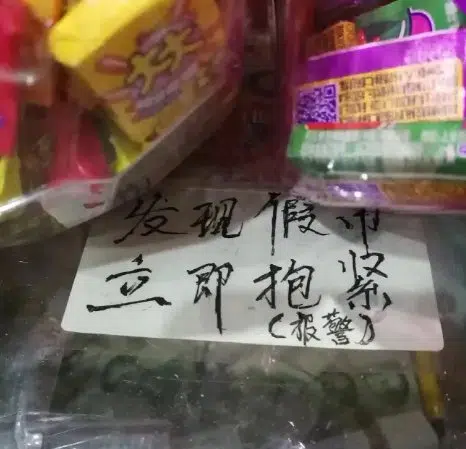 发现假币
立即抱紧
（报警）